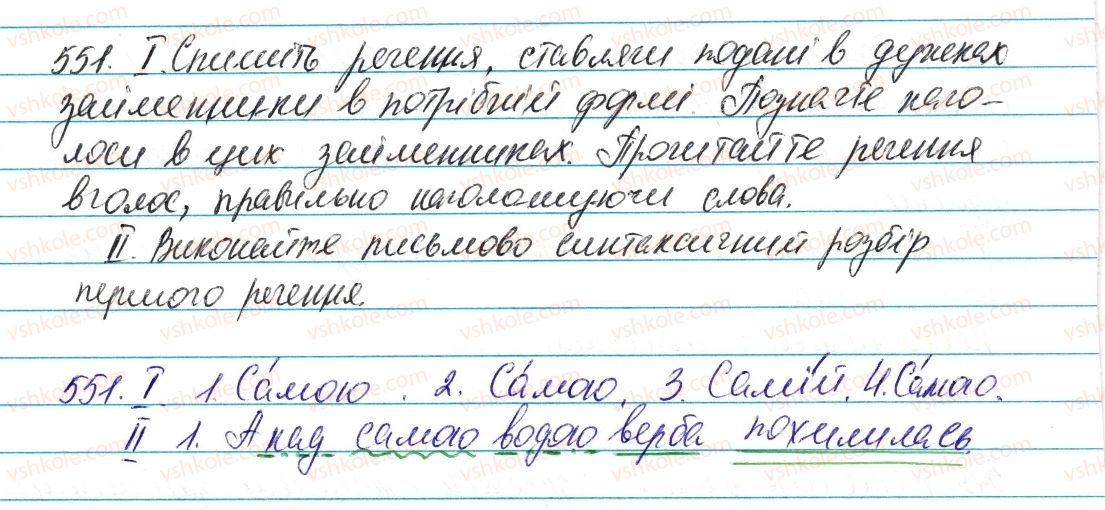 551. I. Спишіть речення, ставлячи подані в дужках
займенники в потрібній формі. Позначте наго-
лоси в цих займенниках. Прочитайте речення
вголос, правильно наголошуючи слова.
II. Виконайте письмово синтаксичний розбір
першого речення.
551. I. 1. Са́мою. 2. Са́мою. 3. Самі́й. 4. Са́мою.
II 1. А над самою водою верба похилилась.